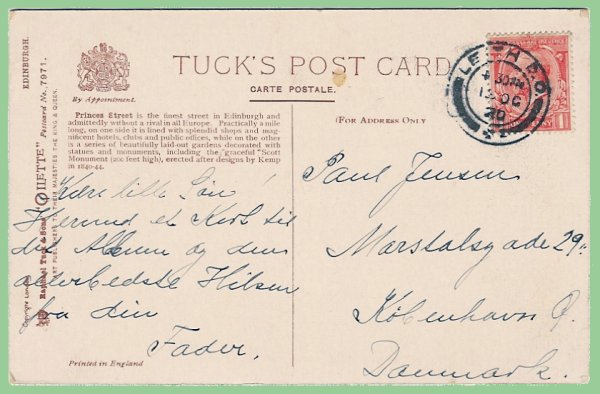 TUCK'S POST CARD
CARTE POSTALE.
By Appointment.
(FOR ADDRESS ONLY
Princes Street is the finest street in Edinburgh and
admittedly without a rival in all Europe. Practically a mile
long, on one side it is lined with splendid shops and mag-
nificent hotels, clubs and public offices, while on the other
is a series of beautifully laid-out gardens decorated with
statues and monuments, including the graceful "Scott
Monument (200 feet high), erected after designs by Kemp
in 1840-44.
Kære lille Søn!
Hermed et Kort til
dit Album og den
allerbedste Hilsen
fra din
Fader.
Printed in England
Paul Jensen
Marstalsgade 29.
København Ø.
Danmark.
EDINBURGH.
"OILETTE" Postcard No. 7971.
Raphael Tuck & Sons
ART PUBLISHERS TO THEIR MAJESTIES THE KING & QUEEN.
Copyright London
LEITH
13 OC
20